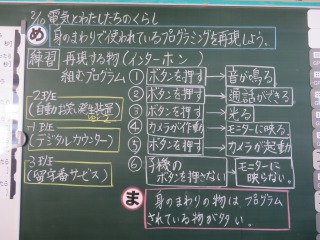 2/10 電気とわたしたちのくらし
め 身のまわりで使われているプログラミングを再現しよう。
練習 再現する物(インターホン)
組むプログラム
① ボタンを押す 音が鳴る
② ボタンを押す 通話ができる
③ ボタンを押す 光る
④ カメラが作動 モニターに映る
⑤ ボタンを押す カメラが起動
⑥ 子機のボタンを押さない モニターに映らない。
1班
(デジタルカウンター)
3班
(留守番サービス)
ま 身のまわりの物はプログラム
されている物が多い。